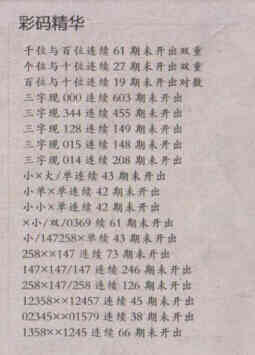 彩码精华
千位与百位连续 61 期未开出双重
个位与十位连续 27 期未开出双重
百位与十位连续 19 期未开出对数
三字现 000 连续 603 期未开出
三字现 344 连续 455 期未开出
三字现 128 连续 149 期未开出
三字现 015 连续 148 期未开出
三字现 014 连续 208 期未开出
小×大/单连续 43 期未开出
小单×单连续 42 期未开出
小小×单连续 42 期未开出
×小/双/0369 续 61 期未开出
小/147258×单续 43 期未开出
258××147 连续 73 期未开出
147×147/147 连续 246 期未开出
258×147/258 连续 126 期未开出
12358××12457 连续 45 期未开出
02345××01579 连续 38 期未开出
1358××1245 连续 66 期未开出